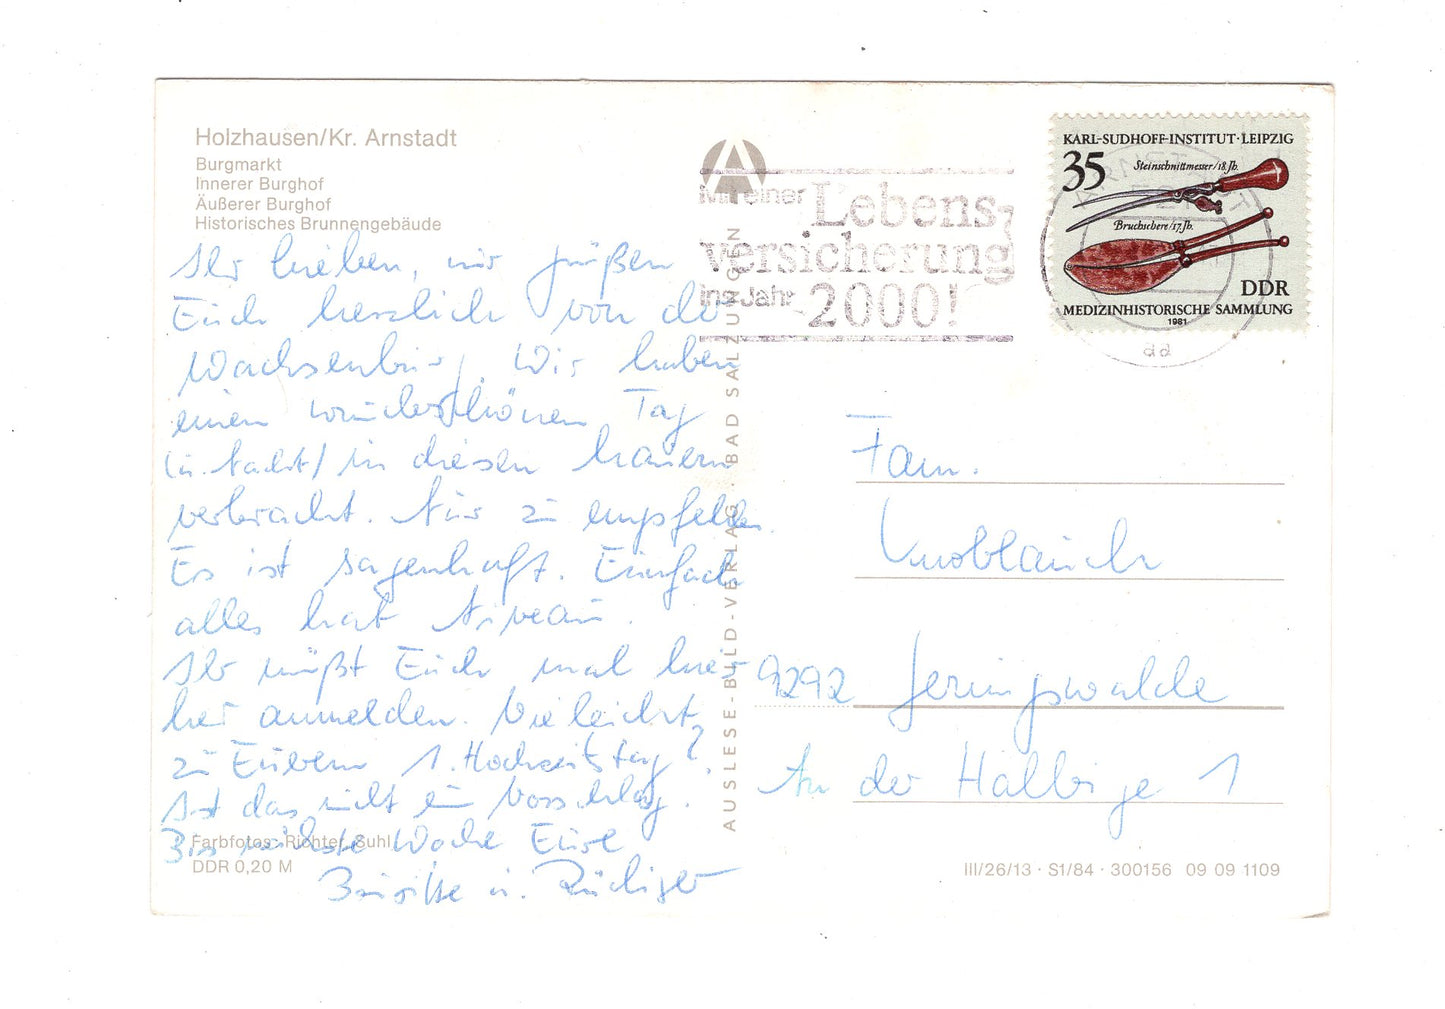 Holzhausen/Kr. Arnstadt
Burgmarkt
Innerer Burghof
Äußerer Burghof
Historisches Brunnengebäude
Ihr Lieben, wir grüßen
Euch herzlich von der
Wachsenburg. Wir haben
einen wunderschönen Tag
(u. Nacht) in diesen Mauern
verbracht. Nur zu empfehlen.
Es ist sagenhaft. Einfach
alles hat Niveau.
Ihr müßt Euch mal hier
her anmelden. Vielleicht
zu Eurem 1. Hochzeitstag?
Ist das nicht ein Vorschlag.
Bis nächste Woche Eure
Birgitte u. Rüdiger
Farbfotos: Richter, Suhl
DDR 0,20 M
AUSLESE-BILD-VERLAG · BAD SALZUNGEN
Mit einer Lebens-
versicherung
ins Jahr 2000!
KARL-SUDHOFF-INSTITUT·LEIPZIG
35
Steinschnittmesser/18.Jh.
Bruchschere/17.Jh.
DDR
MEDIZINHISTORISCHE SAMMLUNG
1981
aa
Fam.
Knoblauch
9292 Geringswalde
An der Halbige 1
III/26/13 · S1/84 · 300156 09 09 1109